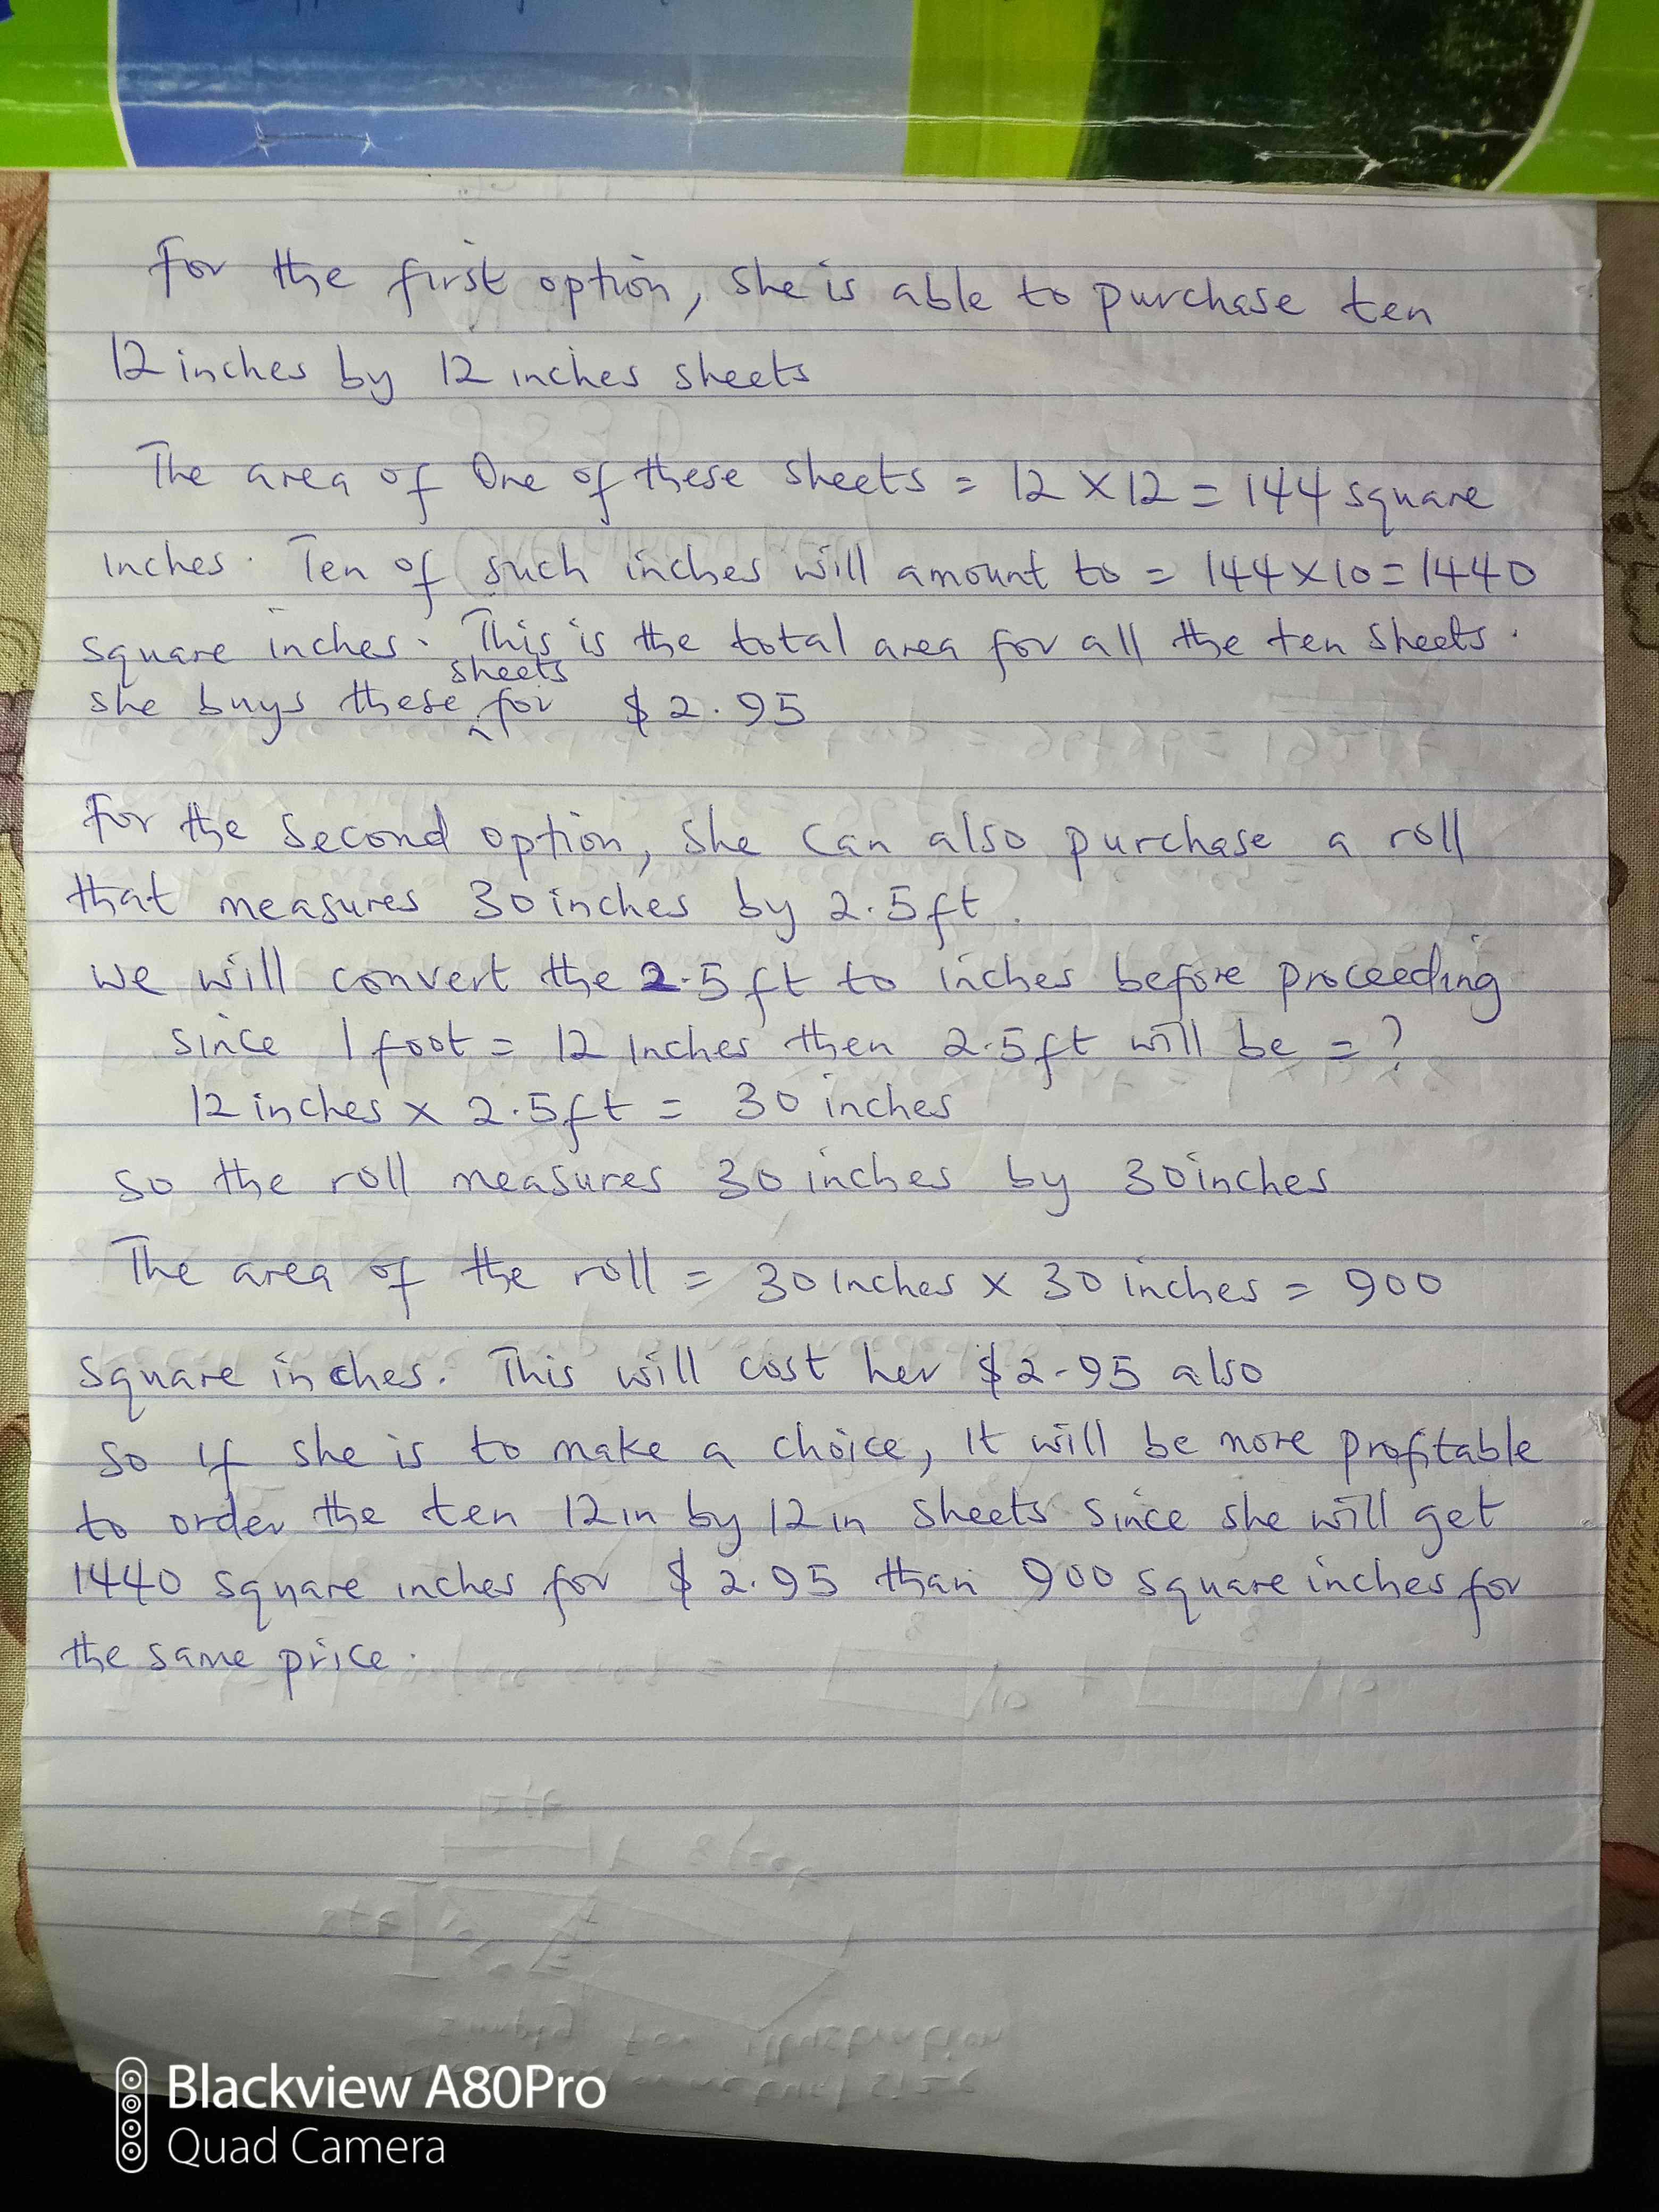 For the first option, she is able to purchase ten
12 inches by 12 inches sheets
The area of One of these sheets = 12 x 12 = 144 square
inches. Ten of such inches will amount to = 144 x 10 = 1440
square inches. This is the total area for all the ten sheets.
she buys these sheets for $2.95
For the second option, she can also purchase a roll
that measures 30 inches by 2.5ft.
we will convert the 2.5ft to inches before proceeding
since 1 foot = 12 inches then 2.5ft will be = ?
12 inches x 2.5ft = 30 inches
so the roll measures 30 inches by 30 inches
The area of the roll = 30 inches x 30 inches = 900
square inches. This will cost her $2.95 also
so if she is to make a choice, it will be more profitable
to order the ten 12 in by 12 in sheets since she will get
1440 square inches for $2.95 than 900 square inches for
the same price.
Blackview A80Pro
Quad Camera